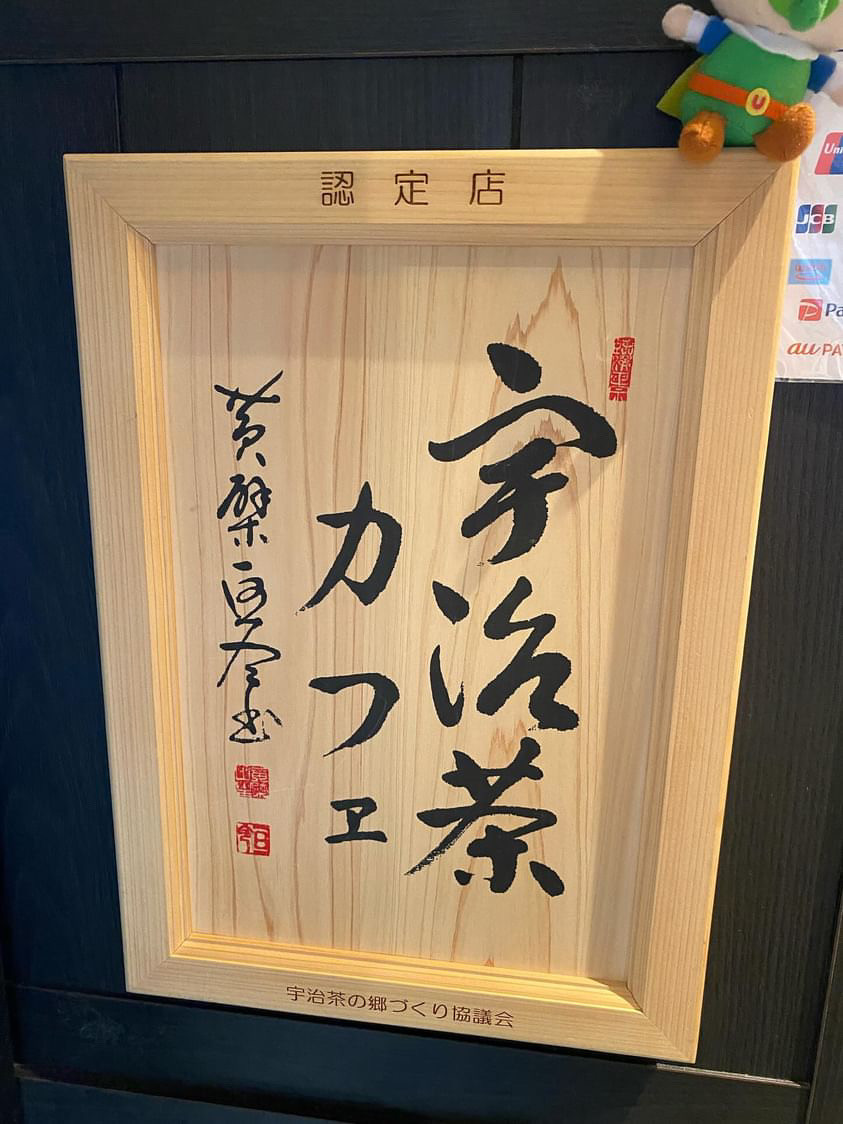 認定店
宇治茶
カフェ
黄檗
宇治茶の郷づくり協議会
U
Uni
JCB
Pa
au PA